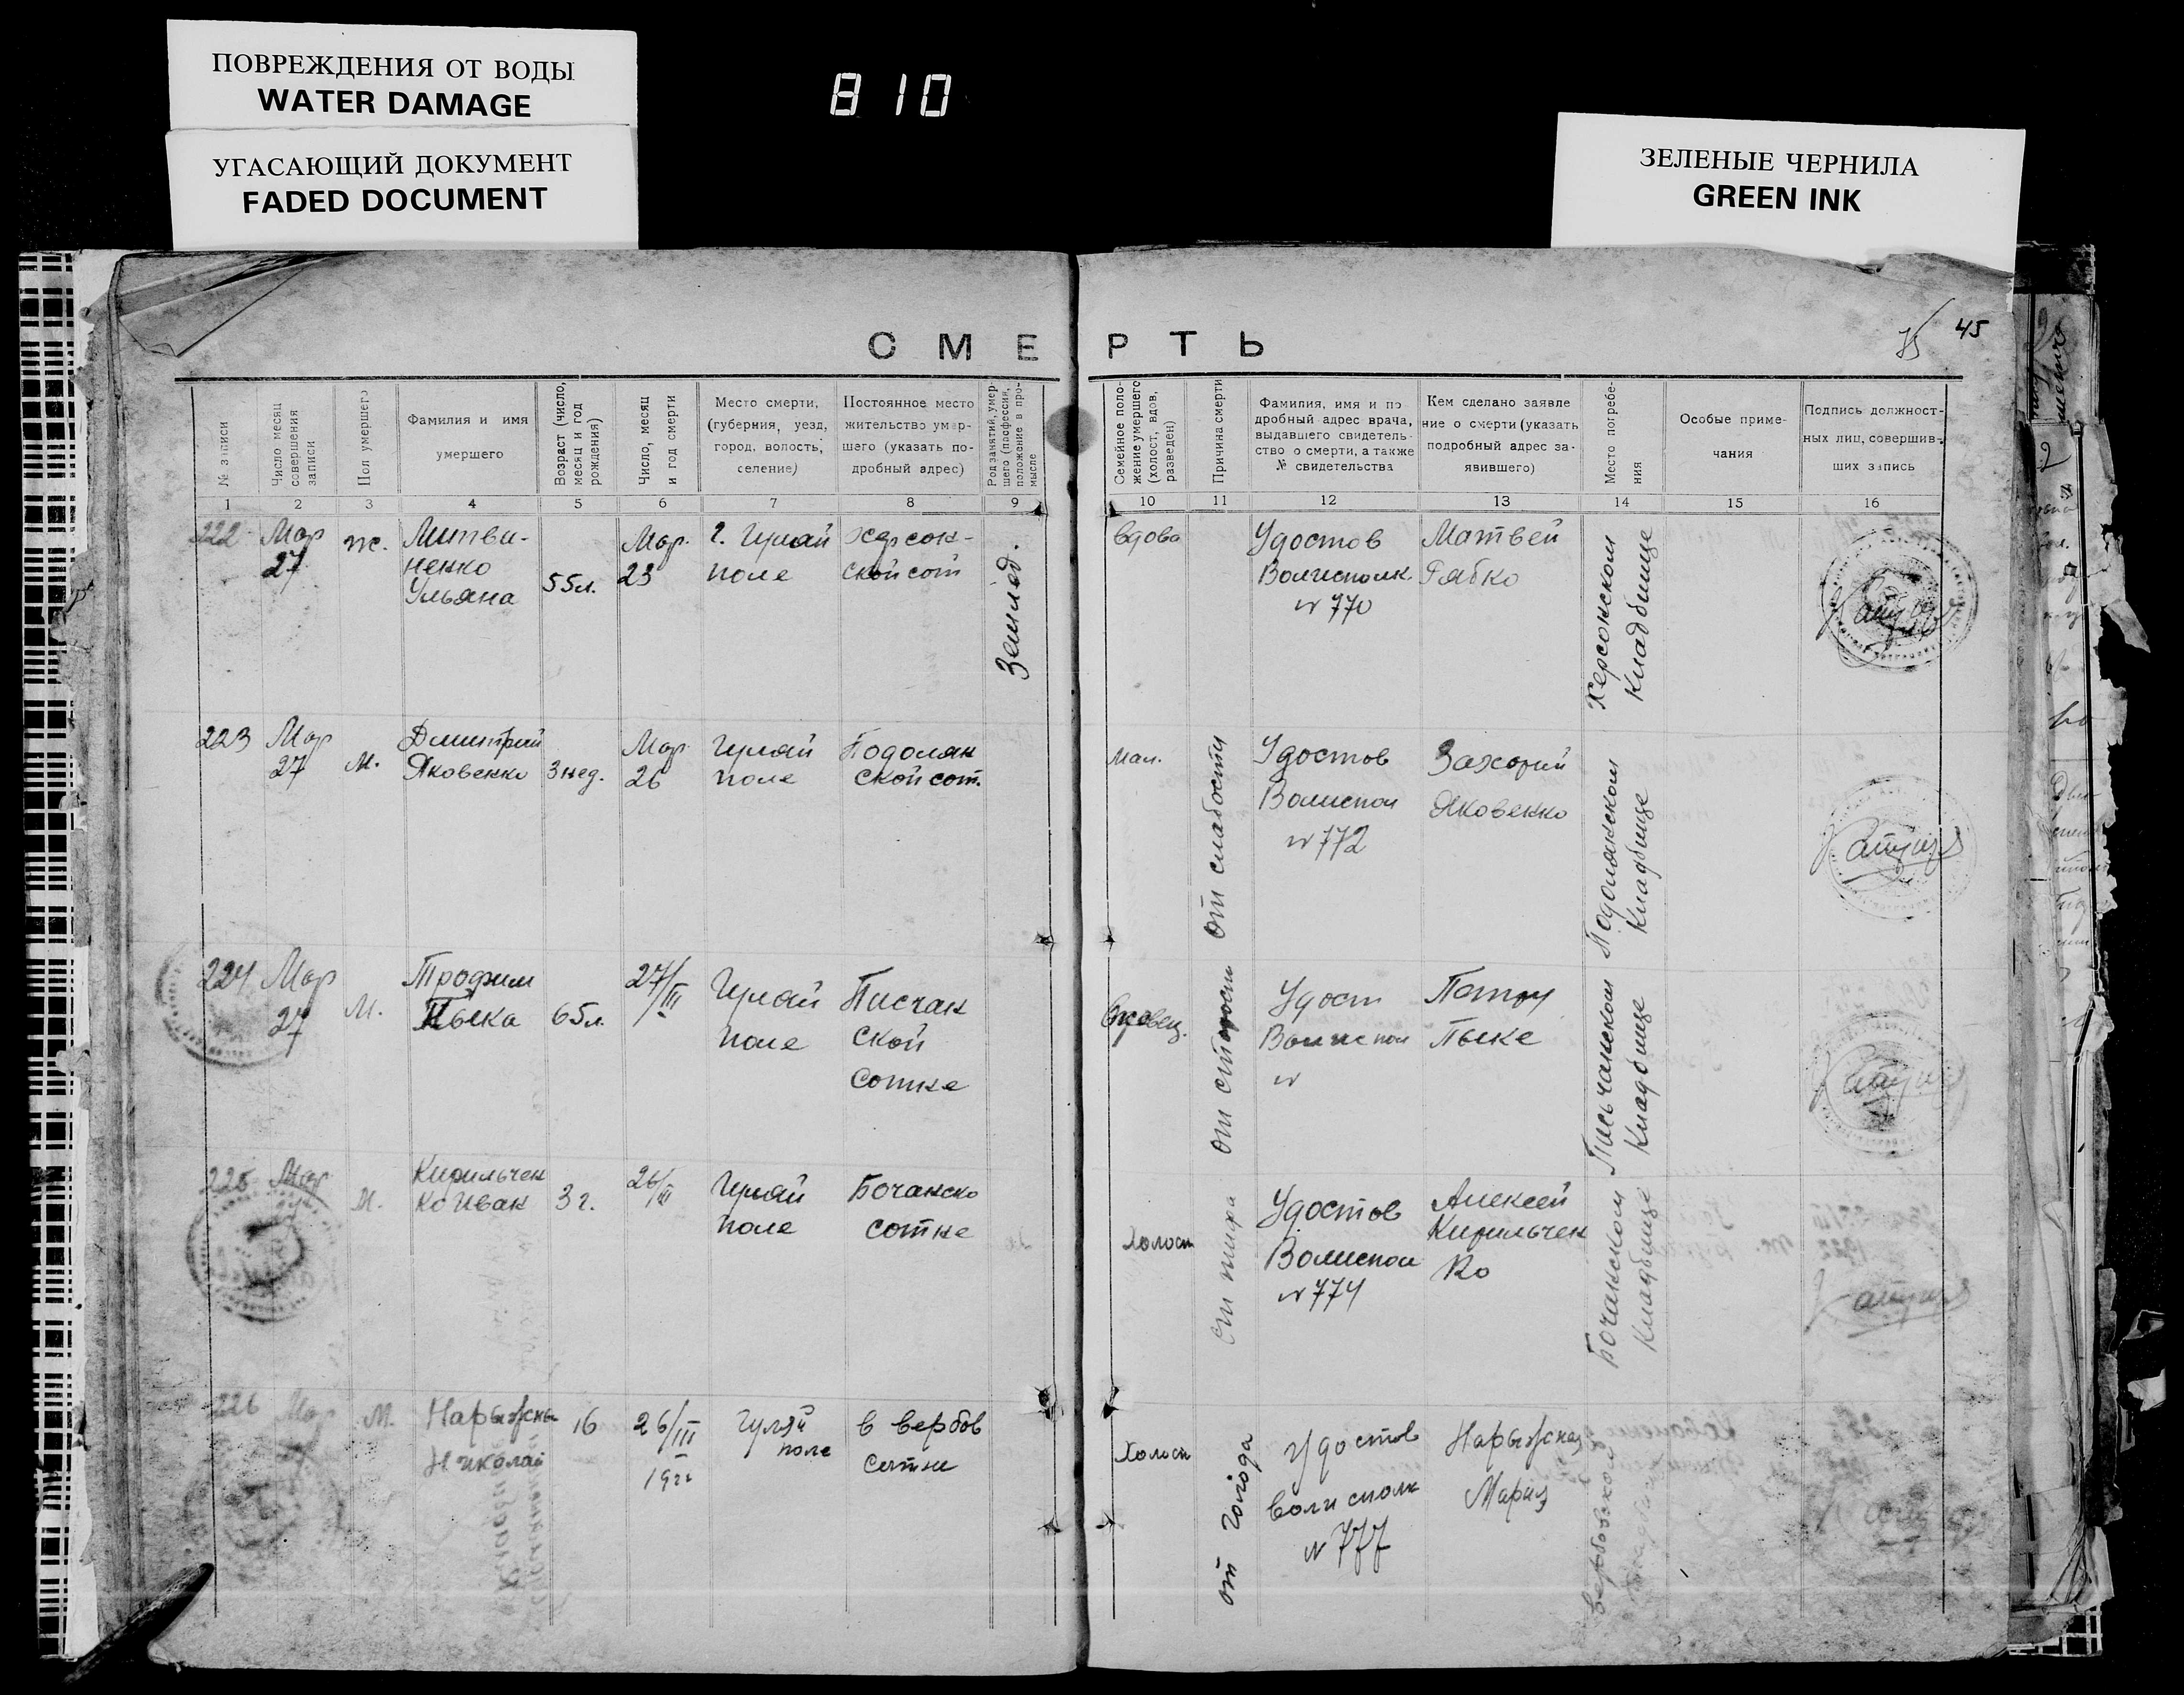 ПОВРЕЖДЕНИЯ ОТ ВОДЫ
WATER DAMAGE
УГАСАЮЩИЙ ДОКУМЕНТ
FADED DOCUMENT
810
ЗЕЛЕНЫЕ ЧЕРНИЛА
GREEN INK
45
СМЕРТЬ
№ записи
Число месяц
совершения
записи
Пол умершего
Фамилия и имя
умершего
Возраст (число,
месяц и год
рождения)
Число, месяц
и год смерти
Место смерти,
(губерния, уезд,
город, волость,
селение)
Постоянное место
жительство умер-
шего (указать по-
дробный адрес)
Род занятий, умер-
шего (профессия,
положение в про-
мысле
Семейное поло-
жение умершего
(холост, вдов,
разведен)
Причина смерти
Фамилия, имя и по
дробный адрес врача,
выдавшего свидетель-
ство о смерти, а также
№ свидетельства
Кем сделано заявле
ние о смерти (указать
подробный адрес за-
явившего)
Место погребе-
ния
Особые приме-
чания
Подпись должност-
ных лиц, совершив-
ших запись
1 2 3 4 5 6 7 8 9 10 11 12 13 14 15 16
222
Мар
27
ж.
Литви-
ненко
Ульяна
55л.
Мар.
23
г. Гуляй
поле
Херсон-
ской сот
Землед.
Вдова
Удостов
Волисполк.
№ 770
Матвей
Рябко
Херсонском
Кладбище
223
Мар
27
м.
Дмитрий
Яковенко
3 нед.
Мар
26
Гуляй
поле
Подолян
ской сот.
мал.
от слабости
Удостов
Волиспол
№ 772
Захорий
Яковенко
Подолянском
Кладбище
224
Мар
27
М.
Трофим
Пыка
65л.
27/III
Гуляй
поле
Писчан
ской
сотне
Вдовец.
от старости
Удост
Волиспол
№
Пыке
Письчанском
Кладбище
225
Мар
М.
Кирильчен
ко Иван
3 г.
26/III
Гуляй
поле
Бочанско
сотне
Холост
от тифа
Удостов
Волиспол
№ 774
Алексей
Кирильчен
ко
Бочанском
Кладбище
226
Мар
М.
Нарыжны
Николай
16
26/III
1922
Гуляй
поле
в вербов
сотне
Холост
от голода
Удостов
волисполк
№ 777
Нарыжная
Мария
Вербовском